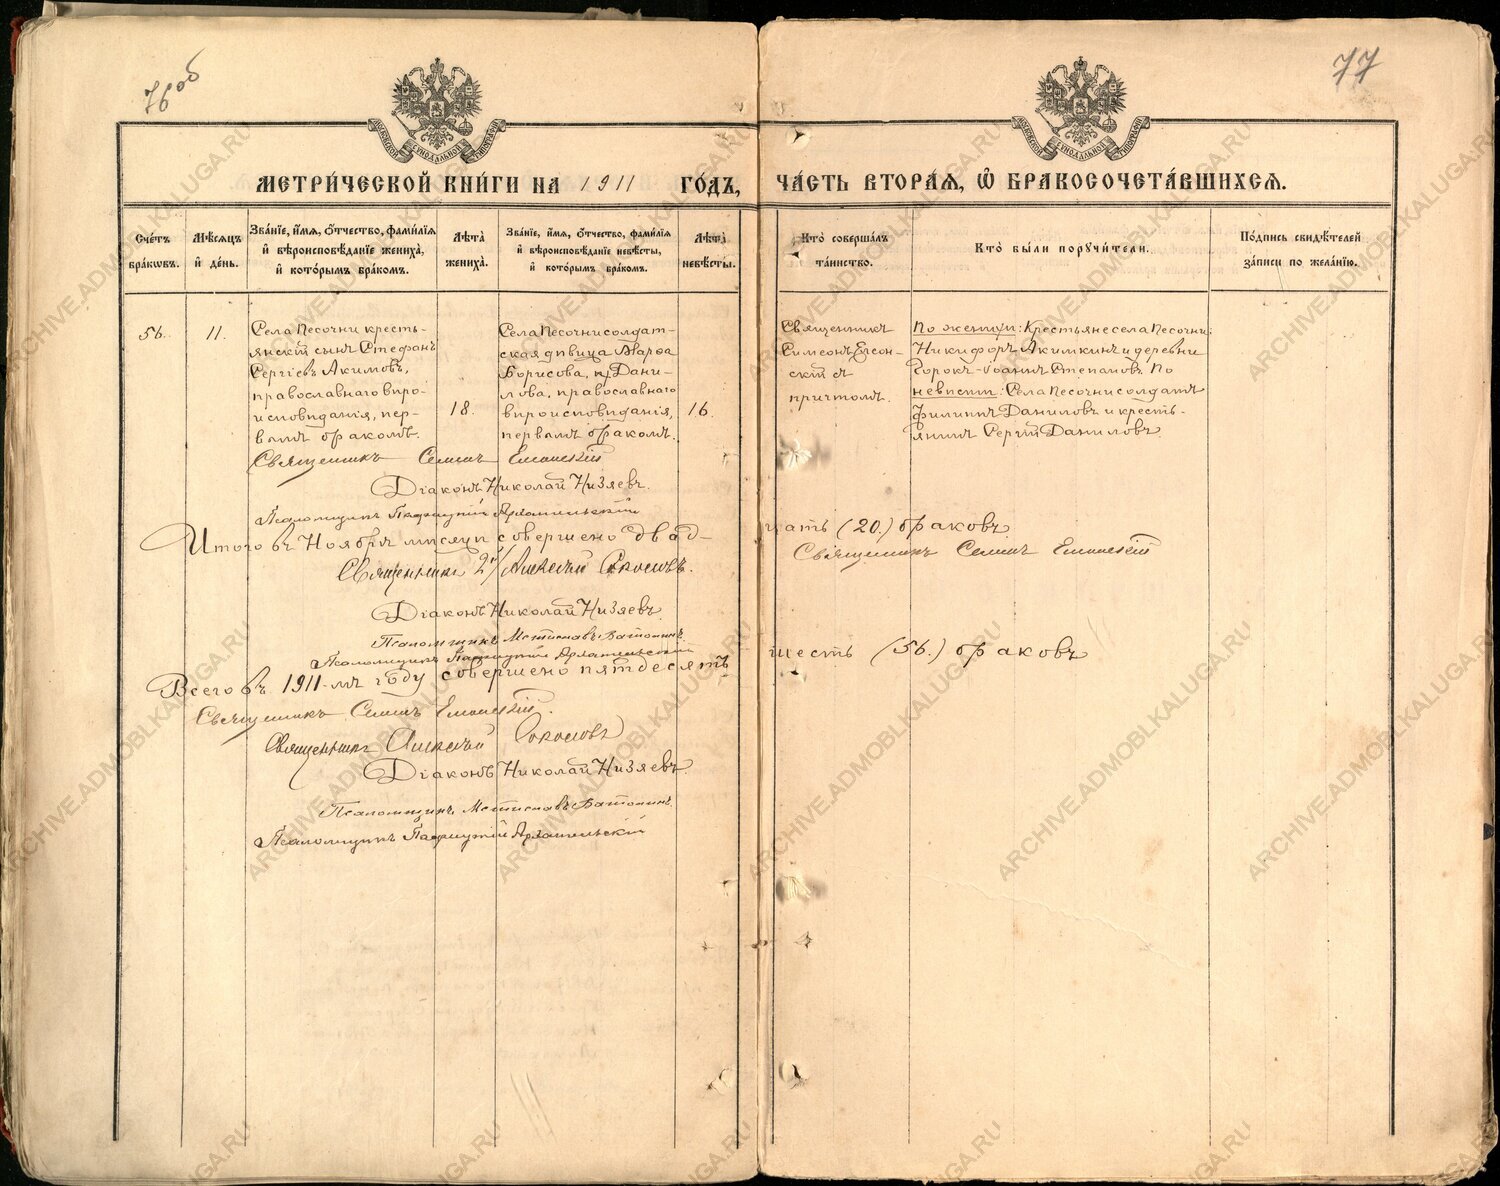 76 об
77
МЕТРИ́ЧЕСКОЙ КНИ́ГИ НА 1911 ГО́ДЪ, ЧА́СТЬ ВТОРА́Я, Ѽ БРАКОСОЧЕТА́ВШИХСЯ.
МОСКОВСКОЙ СѴНОДАЛЬНОЙ ТИПОГРАФІИ
МОСКОВСКОЙ СѴНОДАЛЬНОЙ ТИПОГРАФІИ
Сче́тъ
бра́кѡвъ.
Мѣ́сяцъ
и҆ де́нь.
Зва́нїе, и҆́мя, ѻ҆́тчество, фами́лїя
и҆ вѣроисповѣ́данїе жениха̀,
и҆ кото́рымъ бра́комъ.
Лѣ̑та
жениха̀.
Зва́нїе, и҆́мя, ѻ҆́тчество, фами́лїя
и҆ вѣроисповѣ́данїе невѣ́сты,
и҆ кото́рымъ бра́комъ.
Лѣ̑та
невѣ́сты.
Кто̀ соверша́лъ
та́инство.
Кто̀ бы́ли поручи́тели.
По́дпись свидѣ́телей
за́писи по жела́нїю.
56.
11.
Села Песочни кресть-
янскій сынъ Стефанъ
Сергіевъ Акимовъ,
православнаго вѣро-
исповѣданія, пер-
вымъ бракомъ.
18.
Села Песочни солдат-
ская дѣвица Марѳа
Борисова, Дани-
лова, православнаго
вѣроисповѣданія,
первымъ бракомъ.
16.
Священникъ
Симеонъ
съ
причтомъ.
По женихѣ: Крестьяне села Песочни:
Никифоръ Акимкинъ и деревни
Горокъ Іоаннъ Степановъ По
невѣстѣ: Села Песочни солдатъ
Филиппъ Даниловъ и кресть-
янинъ Сергій Даниловъ.
Священникъ Симеонъ
Діаконъ Николай Низяевъ.
Псаломщикъ Пафнутій
Итого въ Ноябрѣ мѣсяцѣ совершено двад-
цать (20.) браковъ
Священникъ Симеонъ
Священникъ 2й Алексѣй Соколовъ.
Діаконъ Николай Низяевъ
Псаломщикъ Мстиславъ
Псаломщикъ Пафнутій
Всего въ 1911-мъ году совершено пятдесятъ
шесть (56.) браковъ
Священникъ Симеонъ
Священникъ Алексѣй Соколовъ
Діаконъ Николай Низяевъ
Псаломщикъ Мстиславъ
Псаломщикъ Пафнутій
ARCHIVE.ADMOBLKALUGA.RU